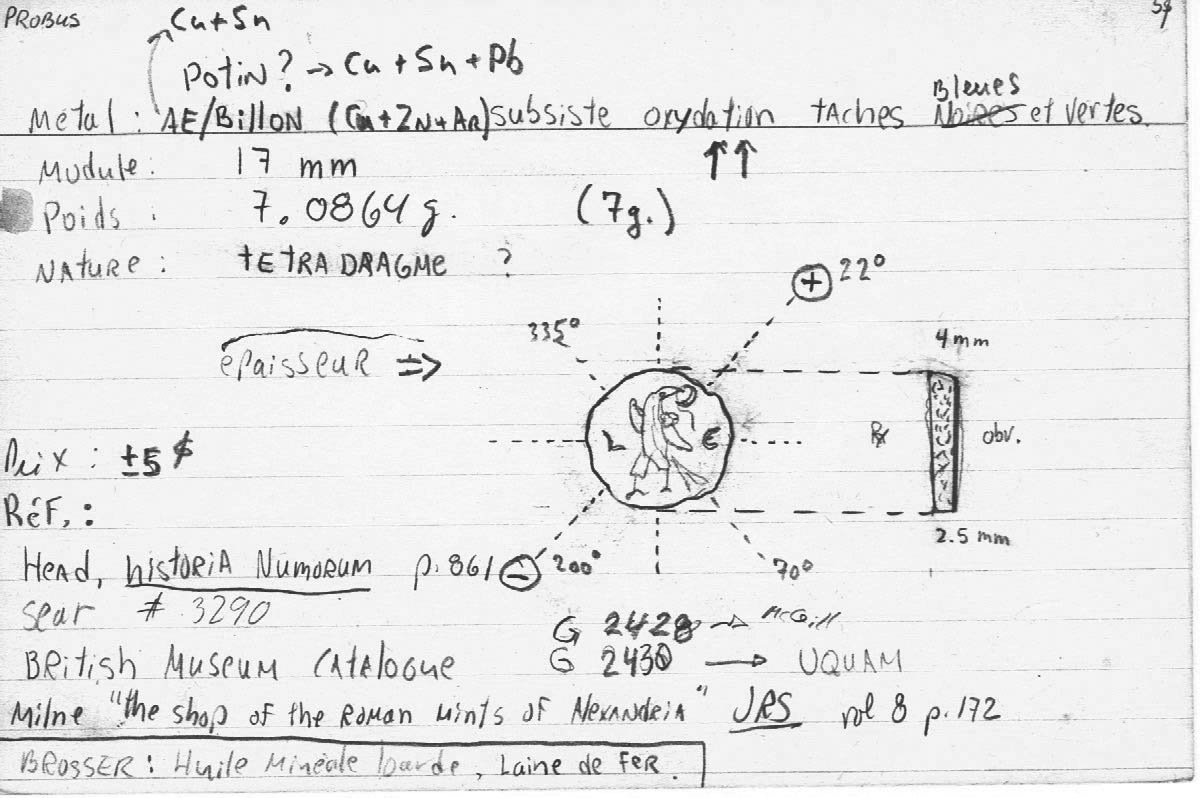 PROBUS
Cu+Sn
Potin? → Cu + Sn + Pb
Métal : AE/BillON (Cu+ZN+AR) subsiste oxydation tAches Bleues Noires et vertes.
Module: 17 mm
Poids : 7.0864 g. (7g.)
NAture : tEtRADRAGME ?
+ 22°
335°
4 mm
épaisseur ⇒
L E
obv.
Prix : ±5 $
RéF. :
2.5 mm
Head, historiA Numorum p. 861
- 200° 70°
Sear # 3290
G 2428 → McGill
BRitish Museum CAtAlogue G 2430 → UQUAM
Milne "the shop of the Roman mints of AlexandRiA" JRS vol 8 p. 172
BROSSER : Huile Minéale lourde, Laine de FeR.